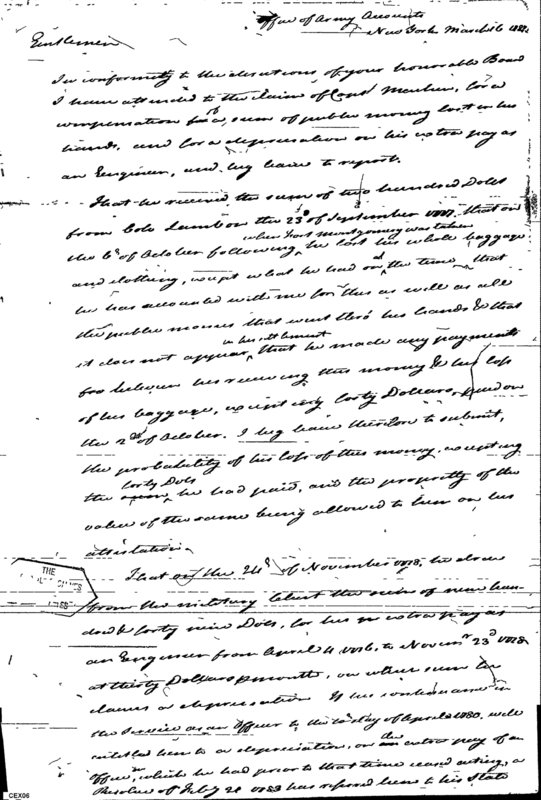 Office of Army Accounts
New York March 6
Gentlemen
In conformity to the directions of your honorable Board
I have attended to the claim of Capt Machin, for a
compensation for a sum of public money lost in his
hands, and for a depreciation on his extra pay as
an Engineer, and beg leave to report.
That he received the sum of two hundred Dolls
from Colo Lamb on the 23d of September 1777. that on
the 6th of October following, when Fort Montgomery was taken he lost his whole baggage
and clothing, except what he had on at the time, that
he has accounted with me for this as well as all
the public monies that went thro' his hands & that
it does not appear, in his settlement that he made any payments
between his receiving this money & his loss
of his baggage, except only forty Dollars, paid on
the 2d of October. I beg leave therefore to submit,
the probability of his loss of this money, excepting
the forty Dols he had paid, and the propriety of the
value of the same being allowed to him on his
attestation.
That on the 24th of November 1778, he drew
from the military Chest the sum of nine hun-
dred & forty nine Dols, for his extra pay as
an Engineer from April 4 1776, to Novemr 23d 1778
at thirty Dollars pr month, on which sum he
claims a depreciation. If his continuance in
the Service as an Officer to the 10th day of April 1780, will
entitled him to a depreciation, on the extra pay of an
office, in which he had prior to that time ceased acting, a
Resolve of Feby 1783 has referred him to his State
THE
CEX06